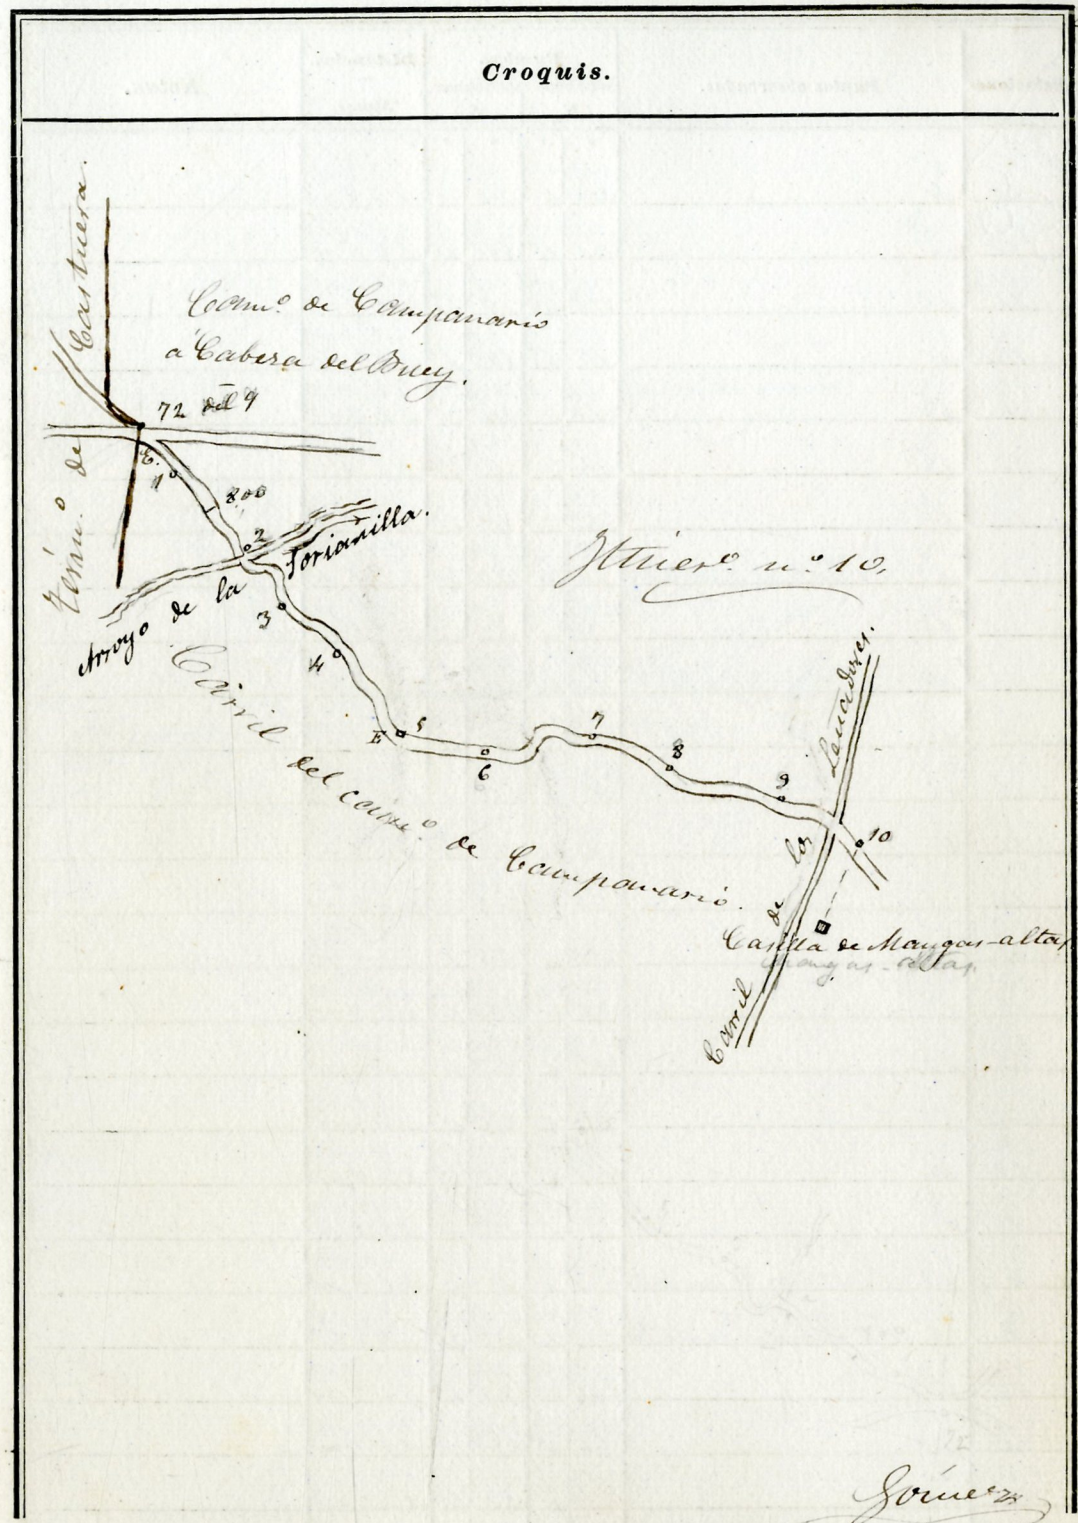 Croquis.
Térmº de Castuera.
Camº de Campanario
a Cabeza del Buey.
72 del 9
E.
1
800
2
Arroyo de la Sorianilla.
3
4
Itinerº nº 10.
E 5
6
7
8
9
10
Carril del camº de Campanario.
Carril de los Leñadores.
Casilla de Mangas-altas
Mangas-altas.
Gómez